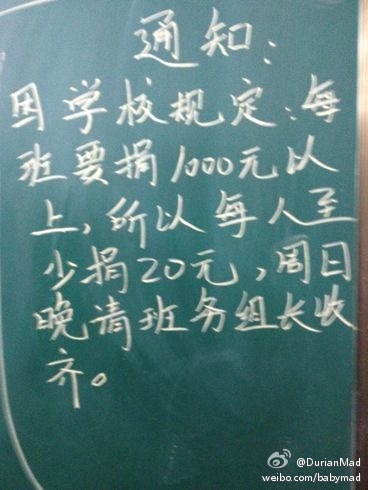 通知:
因学校规定:每
班要捐1000元以
上,所以每人至
少捐20元,周日
晚请班务组长收
齐。
@DurianMad
weibo.com/babymad